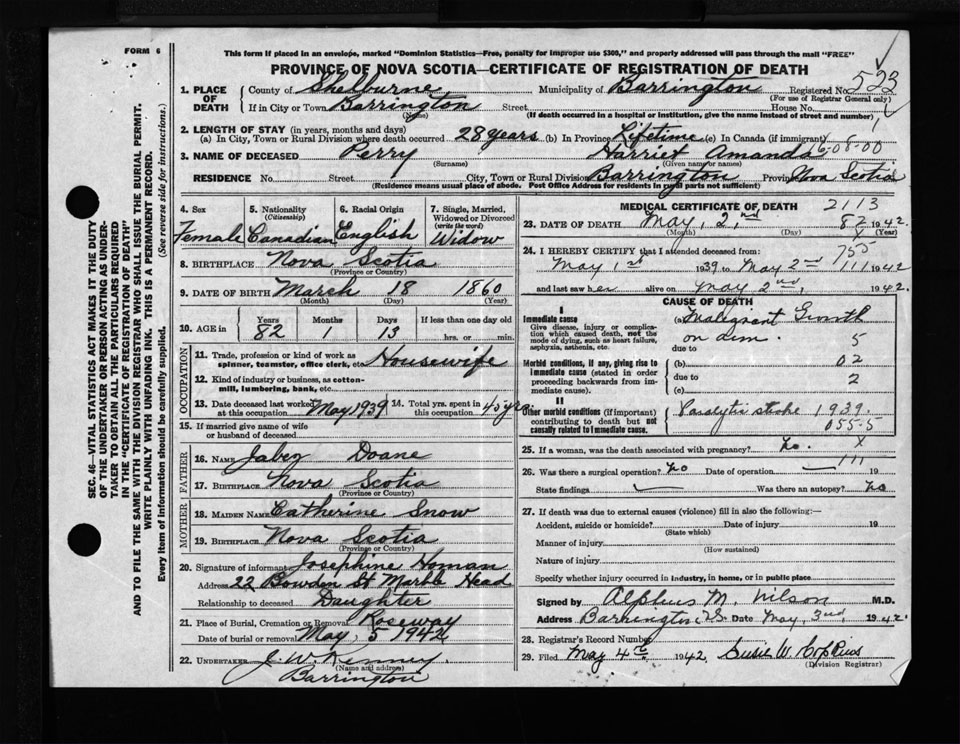 FORM 6
This form if placed in an envelope, marked "Dominion Statistics—Free, penalty for improper use $300," and properly addressed will pass through the mail "FREE"
PROVINCE OF NOVA SCOTIA—CERTIFICATE OF REGISTRATION OF DEATH
SEC. 46—VITAL STATISTICS ACT MAKES IT THE DUTY
OF THE UNDERTAKER OR PERSON ACTING AS UNDER-
TAKER TO OBTAIN ALL THE PARTICULARS REQUIRED
IN THE "CERTIFICATE OF REGISTRATION OF DEATH"
AND TO FILE THE SAME WITH THE DIVISION REGISTRAR WHO SHALL ISSUE THE BURIAL PERMIT.
WRITE PLAINLY WITH UNFADING INK. THIS IS A PERMANENT RECORD.
Every item of information should be carefully supplied. (See reverse side for instructions.)
1. PLACE OF DEATH
County of Shelburne Municipality of Barrington Registered No. 523
(For use of Registrar General only)
If in City or Town Barrington Street House No.
(Name) (If death occurred in a hospital or institution, give the name instead of street and number)
2. LENGTH OF STAY (in years, months and days)
(a) In City, Town or Rural Division where death occurred 28 years (b) In Province Lifetime (c) In Canada (if immigrant)
16-08-00
3. NAME OF DECEASED Perry Harriet Amanda
(Surname) (Given name or names)
RESIDENCE No. Street City, Town or Rural Division Barrington Province Nova Scotia
(Residence means usual place of abode. Post Office Address for residents in rural parts not sufficient)
4. Sex Female
5. Nationality (Citizenship) Canadian
6. Racial Origin English
7. Single, Married, Widowed or Divorced (write the word) Widow
8. BIRTHPLACE Nova Scotia
(Province or Country)
9. DATE OF BIRTH March 18 1860
(Month) (Day) (Year)
10. AGE in Years 82 Months 1 Days 13 If less than one day old
hrs. or min.
OCCUPATION
11. Trade, profession or kind of work as spinner, teamster, office clerk, etc. Housewife
12. Kind of industry or business, as cotton-mill, lumbering, bank, etc.
13. Date deceased last worked at this occupation May 1939 14. Total yrs. spent in this occupation 40 yrs
15. If married give name of wife or husband of deceased
FATHER
16. Name Jabez Doane
17. Birthplace Nova Scotia
(Province or Country)
MOTHER
18. MAIDEN NAME Catherine Snow
19. BIRTHPLACE Nova Scotia
(Province or Country)
20. Signature of informant Josephine Homan
Address 22 Bowden St Marble Head
Relationship to deceased Daughter
21. Place of Burial, Cremation or Removal Roseway
Date of burial or removal May, 5 1942
22. UNDERTAKER J. W. Kenney
(Name and address)
Barrington
MEDICAL CERTIFICATE OF DEATH 2113
23. DATE OF DEATH May, 2nd, 82 1942.
(Month) (Day) (Year)
24. I HEREBY CERTIFY that I attended deceased from: 755
May 1st 1939 to May 2nd 111 1942
and last saw her alive on May 2nd, 1942.
CAUSE OF DEATH
I
Immediate cause
Give disease, injury or complication which caused death, not the mode of dying, such as heart failure, asphyxia, asthenia, etc.
(a) Malignant Growth
5
due to
Morbid conditions, if any, giving rise to immediate cause (stated in order proceeding backwards from immediate cause).
(b) 02
due to 2
(c)
II
Other morbid conditions (if important) contributing to death but not causally related to immediate cause.
Paralytic stroke 1939.
055-5
25. If a woman, was the death associated with pregnancy? no. X
111
26. Was there a surgical operation? no Date of operation 19
State findings Was there an autopsy? no
27. If death was due to external causes (violence) fill in also the following:—
Accident, suicide or homicide? Date of injury 19
(State which)
Manner of injury
(How sustained)
Nature of injury
Specify whether injury occurred in industry, in home, or in public place
Signed by Alpheus M. Wilson M.D.
Address Barrington N.S. Date May, 3rd, 1942.
28. Registrar's Record Number
29. Filed May 4th 1942. Susie W. Hopkins
(Division Registrar)